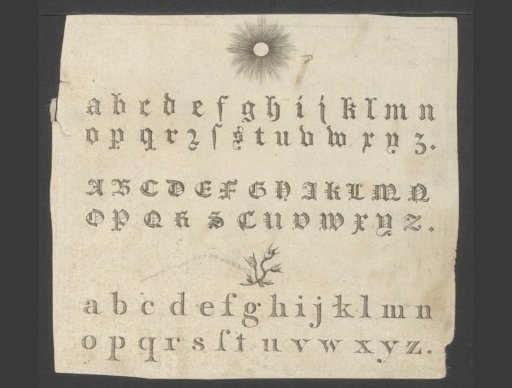 a b c d e f g h i j k l m n
o p q r ꝛ ſ s t u v w x y z.
A B C D E F G H I K L M N
O P Q R S T U V W X Y Z.
a b c d e f g h i j k l m n
o p q r s ſ t u v w x y z.